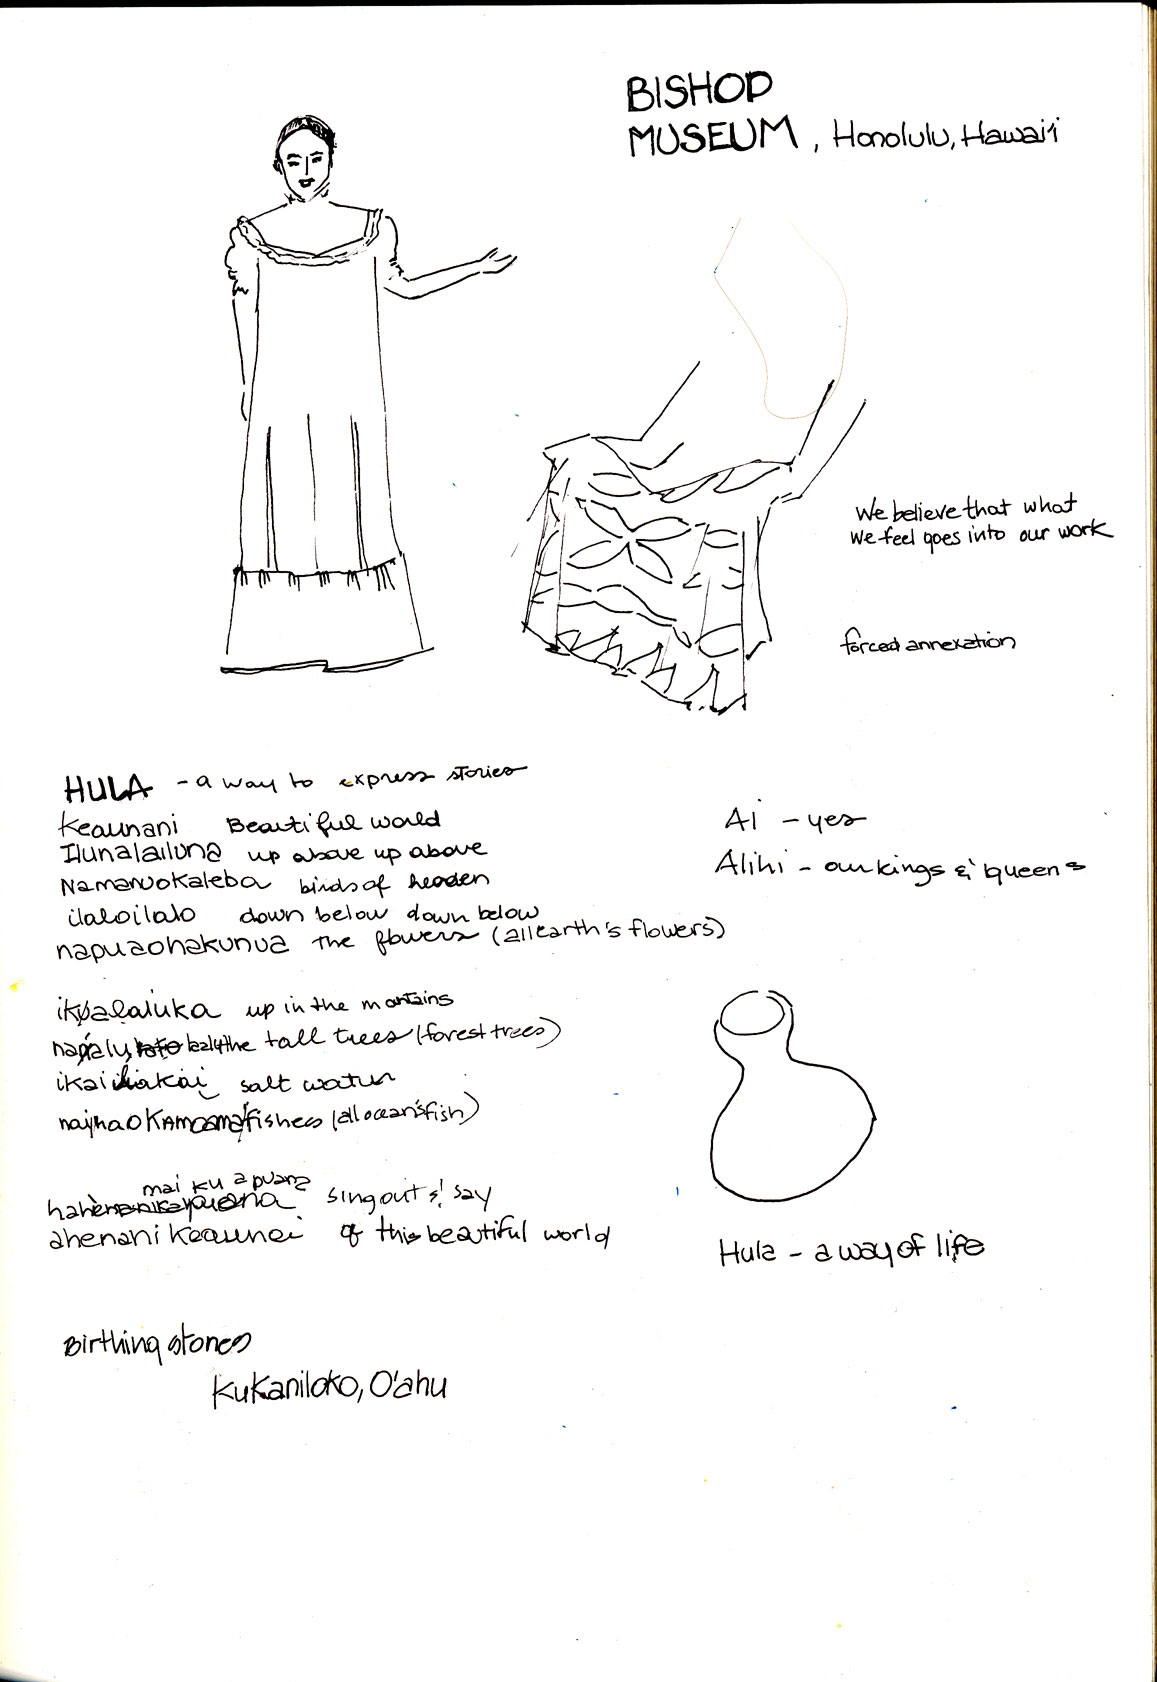 BISHOP
MUSEUM, Honolulu, Hawai'i
We believe that what
we feel goes into our work
forced annexation
HULA - a way to express stories
Keaunani Beautiful world
Ilunalailuna up above up above
Namanuokaleba birds of heaven
ilaloilalo down below down below
napuaohakunua the flowers (all earth's flowers)
Ai - yes
Alihi - our kings & queens
up in the mountains
tall trees (forest trees)
salt water
fishes (all ocean's fish)
mai ku a puana
sing out & say
ahenani keaunei of this beautiful world
Hula - a way of life
Birthing stones
Kukaniloko, O'ahu